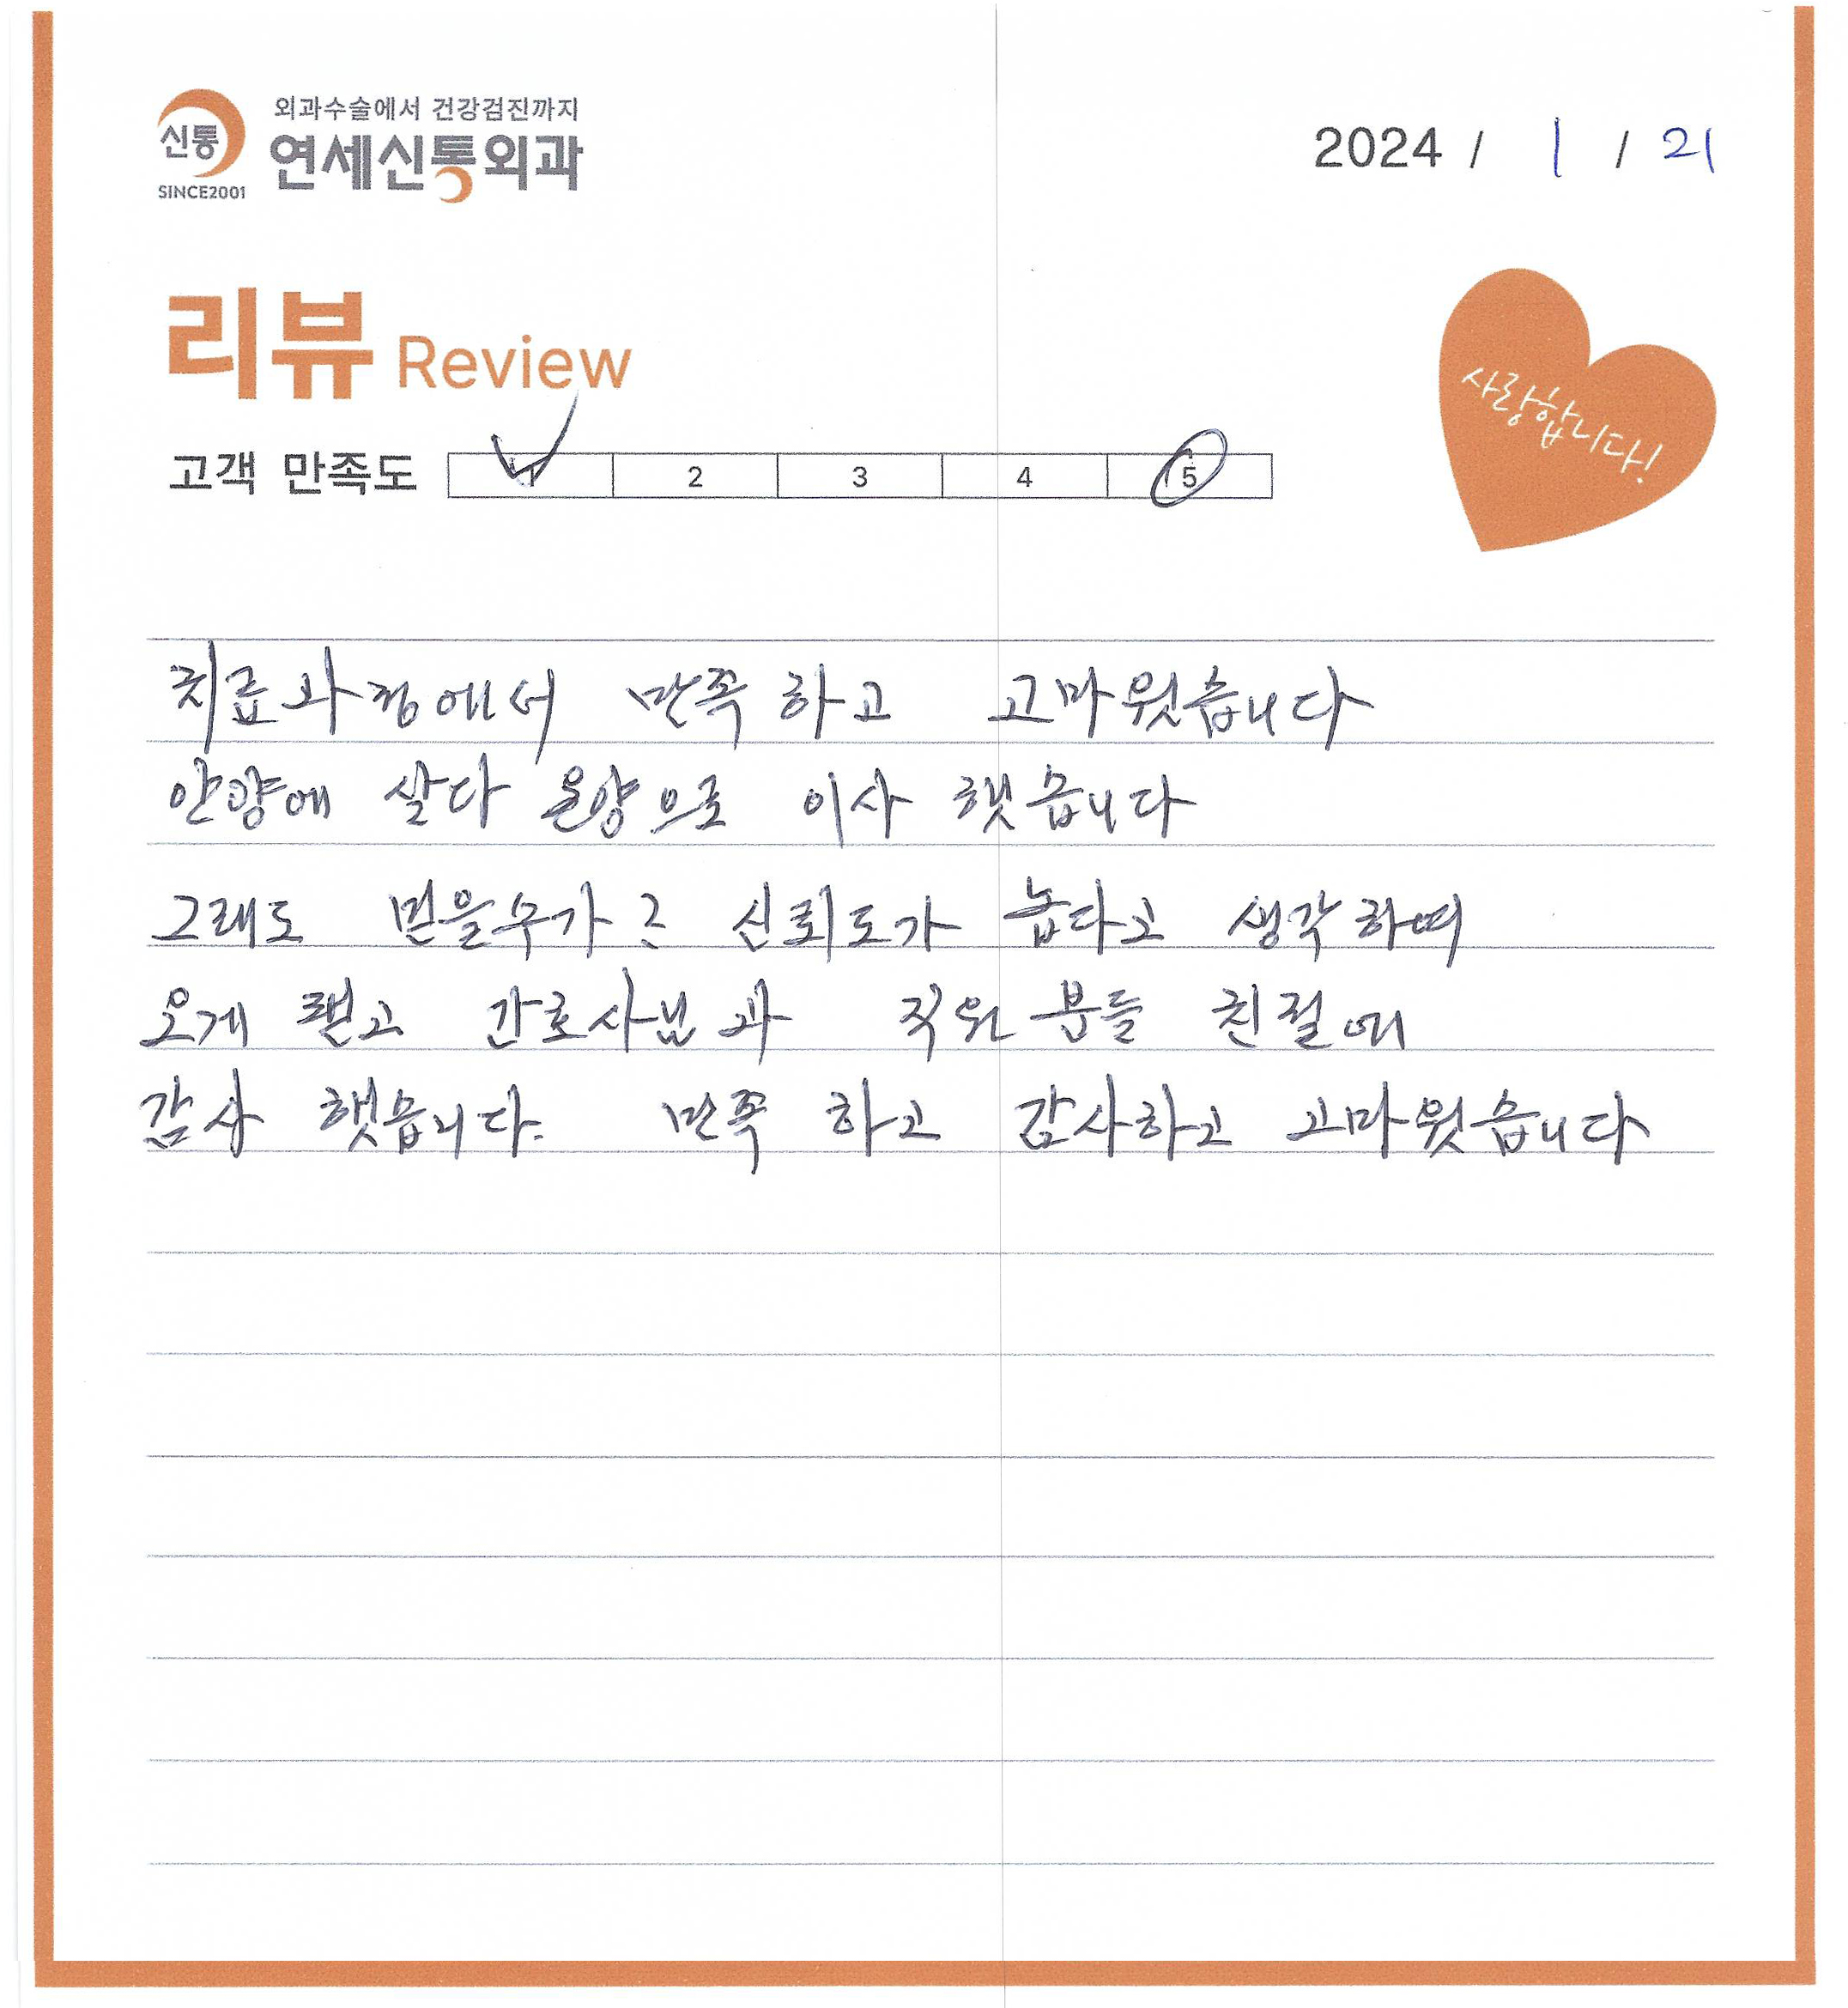 신통
SINCE2001
외과수술에서 건강검진까지
연세신통외과
2024 / 1 / 21
리뷰 Review
사랑합니다!
고객 만족도 1 2 3 4 5
치료과정에서 만족 하고 고마웟습니다
안양에 살다 온양으로 이사 햇습니다
그래도 믿을수가 신뢰도가 높다고 생각하며
오게 됃고 간호사님과 직원분들 친절에
감사 햇습니다. 만족 하고 감사하고 고마웟습니다